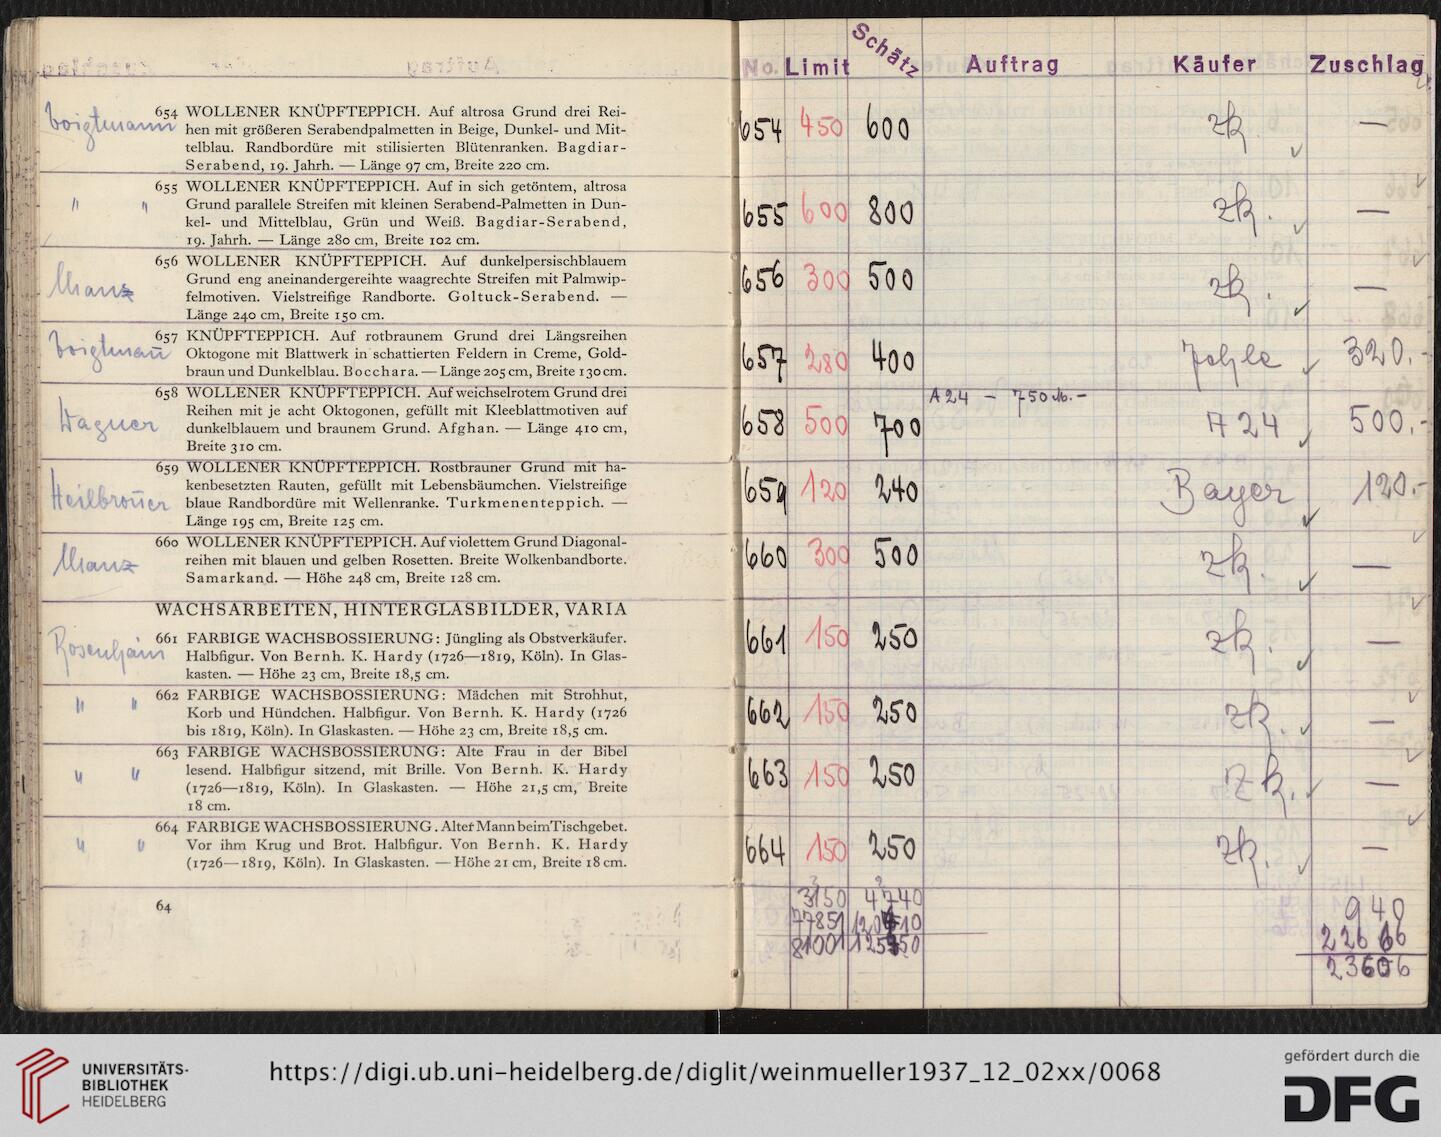 No. Limit Schätz Auftrag Käufer Zuschlag
Voigtmann
654 WOLLENER KNÜPFTEPPICH. Auf altrosa Grund drei Rei-
hen mit größeren Serabendpalmetten in Beige, Dunkel- und Mit-
telblau. Randbordüre mit stilisierten Blütenranken. Bagdiar-
Serabend, 19. Jahrh. — Länge 97 cm, Breite 220 cm.
654 450 600 zk. —
" "
655 WOLLENER KNÜPFTEPPICH. Auf in sich getöntem, altrosa
Grund parallele Streifen mit kleinen Serabend-Palmetten in Dun-
kel- und Mittelblau, Grün und Weiß. Bagdiar-Serabend,
19. Jahrh. — Länge 280 cm, Breite 102 cm.
655 600 800 zk. —
Manz
656 WOLLENER KNÜPFTEPPICH. Auf dunkelpersischblauem
Grund eng aneinandergereihte waagrechte Streifen mit Palmwip-
felmotiven. Vielstreifige Randborte. Goltuck-Serabend. —
Länge 240 cm, Breite 150 cm.
656 300 500 zk. —
Voigtmañ
657 KNÜPFTEPPICH. Auf rotbraunem Grund drei Längsreihen
Oktogone mit Blattwerk in schattierten Feldern in Creme, Gold-
braun und Dunkelblau. Bocchara. — Länge 205 cm, Breite 130 cm.
657 280 400 320.-
Wagner
658 WOLLENER KNÜPFTEPPICH. Auf weichselrotem Grund drei
Reihen mit je acht Oktogonen, gefüllt mit Kleeblattmotiven auf
dunkelblauem und braunem Grund. Afghan. — Länge 410 cm,
Breite 310 cm.
A24 – 750 M.–
658 500 700 A 24 500.-
Heilbroñer
659 WOLLENER KNÜPFTEPPICH. Rostbrauner Grund mit ha-
kenbesetzten Rauten, gefüllt mit Lebensbäumchen. Vielstreifige
blaue Randbordüre mit Wellenranke. Turkmenenteppich. —
Länge 195 cm, Breite 125 cm.
659 120 240 Bayer 120.-
Manz
660 WOLLENER KNÜPFTEPPICH. Auf violettem Grund Diagonal-
reihen mit blauen und gelben Rosetten. Breite Wolkenbandborte.
Samarkand. — Höhe 248 cm, Breite 128 cm.
660 300 500 zk. —
WACHSARBEITEN, HINTERGLASBILDER, VARIA
Rosenhain
661 FARBIGE WACHSBOSSIERUNG: Jüngling als Obstverkäufer.
Halbfigur. Von Bernh. K. Hardy (1726—1819, Köln). In Glas-
kasten. — Höhe 23 cm, Breite 18,5 cm.
661 150 250 zk. —
" "
662 FARBIGE WACHSBOSSIERUNG: Mädchen mit Strohhut,
Korb und Hündchen. Halbfigur. Von Bernh. K. Hardy (1726
bis 1819, Köln). In Glaskasten. — Höhe 23 cm, Breite 18,5 cm.
662 150 250 zk. —
" "
663 FARBIGE WACHSBOSSIERUNG: Alte Frau in der Bibel
lesend. Halbfigur sitzend, mit Brille. Von Bernh. K. Hardy
(1726—1819, Köln). In Glaskasten. — Höhe 21,5 cm, Breite
18 cm.
663 150 250 zk. —
" "
664 FARBIGE WACHSBOSSIERUNG. Alter Mann beim Tischgebet.
Vor ihm Krug und Brot. Halbfigur. Von Bernh. K. Hardy
(1726—1819, Köln). In Glaskasten. — Höhe 21 cm, Breite 18 cm.
664 150 250 zk. —
64
3150 4740 940
77851 22666
81001 23606
UNIVERSITÄTS-
BIBLIOTHEK
HEIDELBERG
https://digi.ub.uni-heidelberg.de/diglit/weinmueller1937_12_02xx/0068
gefördert durch die
DFG